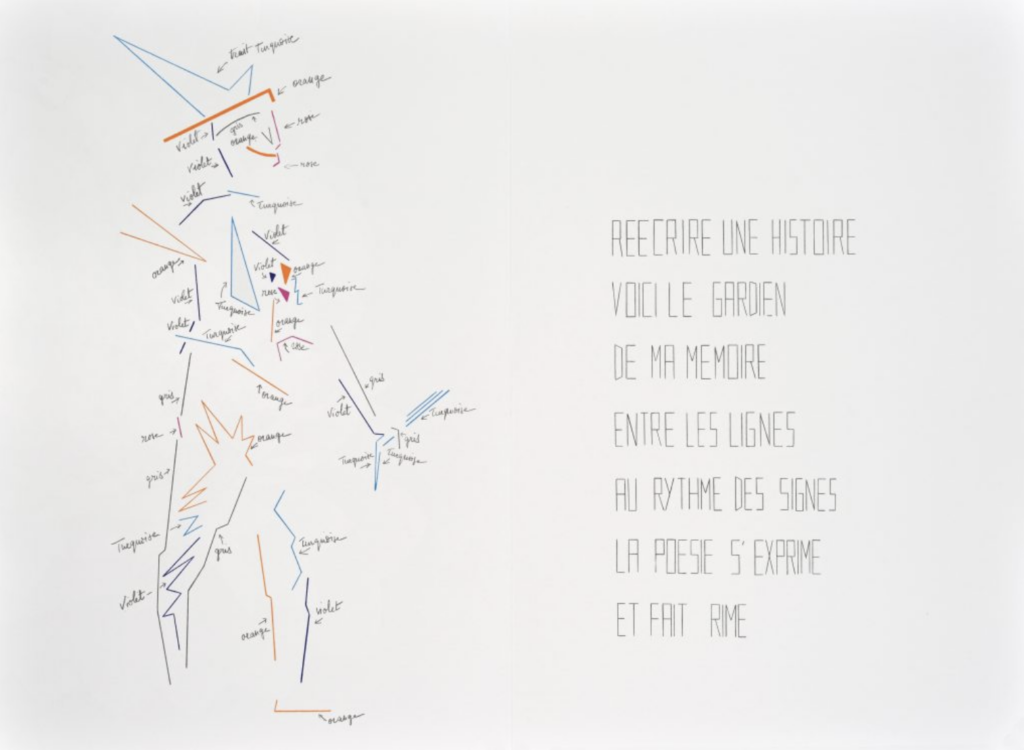 trait Turquoise
orange
rose
gris
violet
orange
violet
rose
violet
Turquoise
Violet
orange
Violet
orange
rose
Turquoise
violet
Turquoise
orange
Violet
Turquoise
rose
gris
gris
orange
violet
Turquoise
rose
orange
gris
Turquoise
Turquoise
gris
Turquoise
Turquoise
gris
violet
violet
orange
orange
REECRIRE UNE HISTOIRE
VOICI LE GARDIEN
DE MA MEMOIRE
ENTRE LES LIGNES
AU RYTHME DES SIGNES
LA POESIE S'EXPRIME
ET FAIT RIME